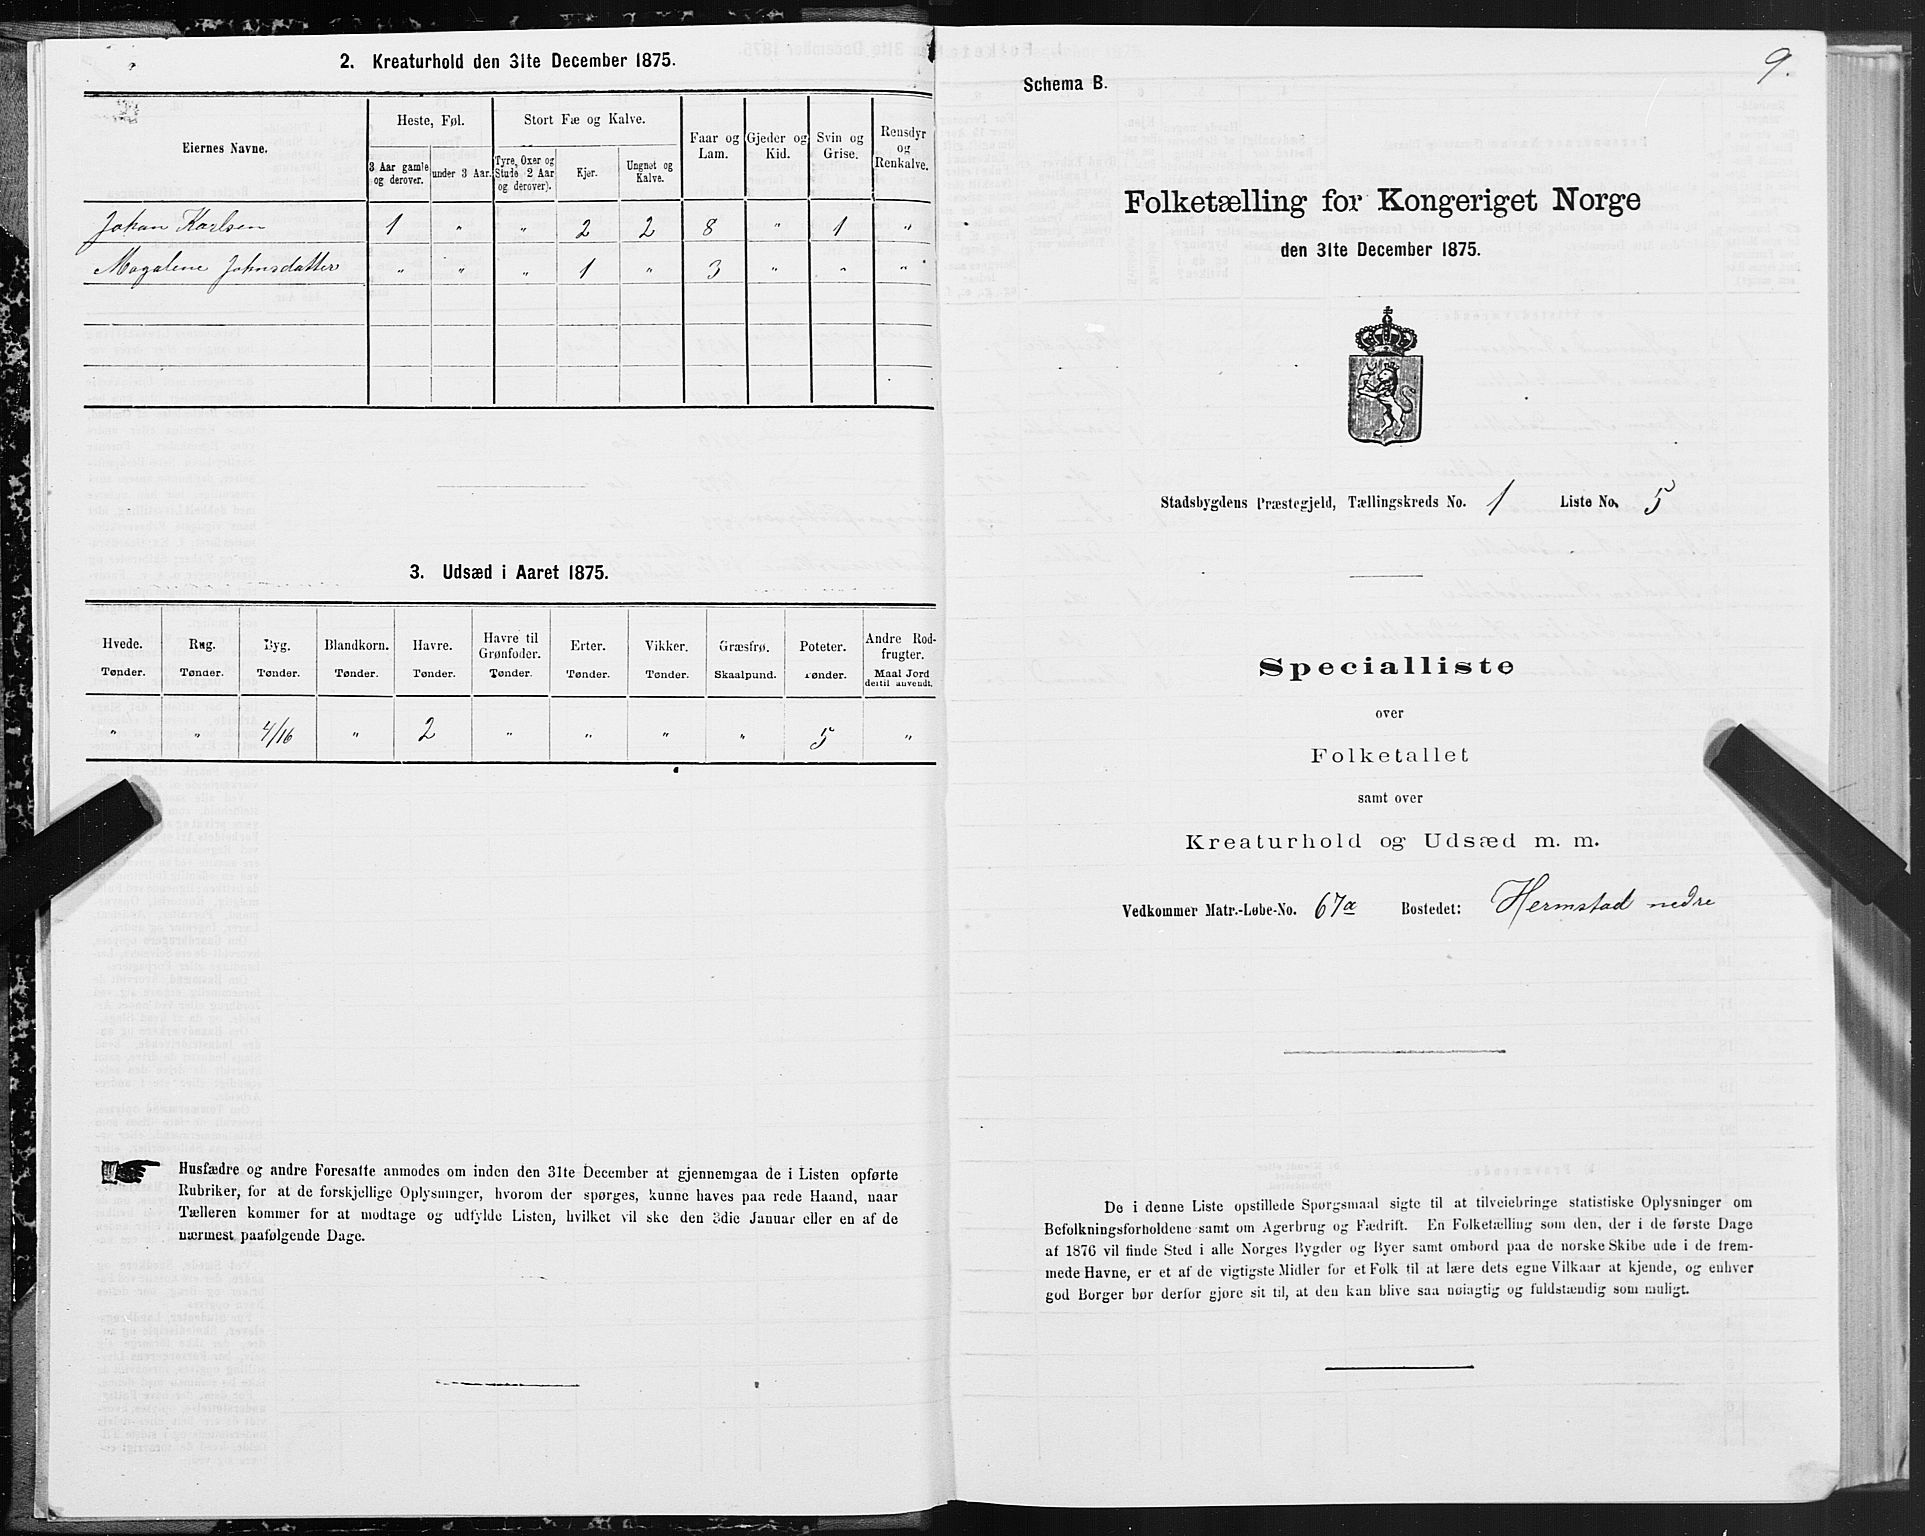 2. Kreaturhold den 31te December 1875.
Eiernes Navne.
Heste, Føl.
Stort Fæ og Kalve.
Faar og Lam.
Gjeder og Kid.
Svin og Grise.
Rensdyr og Renkalve.
3 Aar gamle og derover.
under 3 Aar.
Tyre, Oxer og Stude 2 Aar og derover).
Kjør.
Ungnøt og Kalve.
Johan Karlsen 1 " " 2 2 8 " 1 "
Magalene Johnsdatter " " " 1 " 3 " " "
3. Udsæd i Aaret 1875.
Hvede. Rug. Byg. Blandkorn. Havre. Havre til Grønfoder. Erter. Vikker. Græsfrø. Poteter. Andre Rodfrugter.
Tønder. Tønder. Tønder. Tønder. Tønder. Tønder. Tønder. Tønder. Skaalpund. Tønder. Maal Jord dertil anvendt.
" " 4/16 " 2 " " " " 5 "
Husfædre og andre Foresatte anmodes om inden den 31te December at gjennemgaa de i Listen opførte
Rubriker, for at de forskjellige Oplysninger, hvorom der spørges, kunne haves paa rede Haand, naar
Tælleren kommer for at modtage og udfylde Listen, hvilket vil ske den 3die Januar eller en af de
nærmest paafølgende Dage.
9.
Schema B.
Folketælling for Kongeriget Norge
den 31te December 1875.
Stadsbygdens Præstegjeld, Tællingskreds No. 1 Liste No. 5
Specialliste
over
Folketallet
samt over
Kreaturhold og Udsæd m. m.
Vedkommer Matr.-Løbe-No. 67a Bostedet: Hermstad nedre
De i denne Liste opstillede Spørgsmaal sigte til at tilveiebringe statistiske Oplysninger om
Befolkningsforholdene samt om Agerbrug og Fædrift. En Folketælling som den, der i de første Dage
af 1876 vil finde Sted i alle Norges Bygder og Byer samt ombord paa de norske Skibe ude i de frem-
mede Havne, er et af de vigtigste Midler for et Folk til at lære dets egne Vilkaar at kjende, og enhver
god Borger bør derfor gjøre sit til, at den kan blive saa nøiagtig og fuldstændig som muligt.